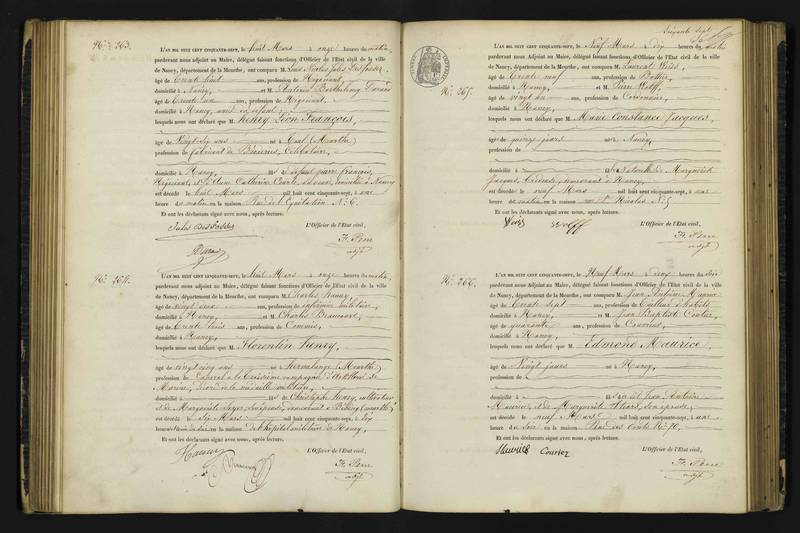 Nº 263.
L'AN MIL HUIT CENT CINQUANTE-SEPT, le huit Mars à onze heures du matin,
pardevant nous adjoint au Maire, délégué faisant fonctions d'Officier de l'Etat civil de la ville
de Nancy, département de la Meurthe, ont comparu M. Louis Nicolas Jules Desfossés
âgé de trente huit ans, profession de Négociant,
domicilié à Nancy, et M. Antoine Barthélemy
âgé de trente un ans, profession de Négociant,
domicilié à Nancy, amis du défunt,
lesquels nous ont déclaré que M. henry, Léon François,
âgé de Vingt six ans né à Toul (Meurthe)
profession de fabricant de Broderies, Célibataire,
domicilié à Nancy, fils de défunt pierre françois,
Négociant, et de Anne Catherine
est décédé le huit Mars mil huit cent cinquante-sept, à une
heure du matin en la maison Rue de l'Equitation Nº 6.
Et ont les déclarants signé avec nous, après lecture.
Jules Desfossés
L'Officier de l'Etat civil,
adjt
Nº 264.
L'AN MIL HUIT CENT CINQUANTE-SEPT, le huit Mars à onze heures du matin,
pardevant nous adjoint au Maire, délégué faisant fonctions d'Officier de l'Etat civil de la ville
de Nancy, département de la Meurthe, ont comparu M. Charles
âgé de vingt ans, profession de infirmier militaire,
domicilié à Nancy, et M. Charles Beaucourt,
âgé de trente trois ans, profession de Commis,
domicilié à Nancy,
lesquels nous ont déclaré que M. Florentin henry,
âgé de vingt cinq ans né à Hermelange (Meurthe)
profession de Caporal à la troisième compagnie d'
Marine, décoré de la médaille militaire,
domicilié à fils de Christophe henry, cultivateur
et de Marguerite son épouse, demeurant à
est décédé le sept Mars mil huit cent cinquante-sept, à
heures du soir en la maison de l'hôpital militaire de Nancy.
Et ont les déclarants signé avec nous, après lecture.
L'Officier de l'Etat civil,
adjt
soixante sept
Nº 265.
L'AN MIL HUIT CENT CINQUANTE-SEPT, le Neuf Mars à dix heures du matin
pardevant nous adjoint au Maire, délégué faisant fonctions d'Officier de l'Etat civil de la ville
de Nancy, département de la Meurthe, ont comparu M. Laurent
âgé de trente neuf ans, profession de
domicilié à Nancy, et M. Pierre Wolff,
âgé de vingt un ans, profession de Cordonnier,
domicilié à Nancy,
lesquels nous ont déclaré que M. Marie Constance Jacques,
âgé de quinze jours né à Nancy,
profession de
domicilié à fille naturelle de Marguerite
Jacques, brodeuse, demeurant à Nancy,
est décédé le neuf Mars mil huit cent cinquante-sept, à une
heure du matin en la maison rue St. Nicolas Nº 5
Et ont les déclarants signé avec nous, après lecture.
Wolff
L'Officier de l'Etat civil,
adjt
Nº 266.
L'AN MIL HUIT CENT CINQUANTE-SEPT, le Neuf Mars à deux heures du soir
pardevant nous adjoint au Maire, délégué faisant fonctions d'Officier de l'Etat civil de la ville
de Nancy, département de la Meurthe, ont comparu M. Jean Antoine Maurice
âgé de trente sept ans, profession de Tailleur d'habits
domicilié à Nancy, et M. Jean Baptiste
âgé de quarante ans, profession de
domicilié à Nancy,
lesquels nous ont déclaré que M. Edmond Maurice,
âgé de Vingt jours né à Nancy,
profession de
domicilié à fils de Jean Antoine
Maurice, et de Marguerite son épouse,
est décédé le neuf Mars mil huit cent cinquante-sept, à une
heure du soir en la maison Rue des Nº 70,
Et ont les déclarants signé avec nous, après lecture.
Maurice
L'Officier de l'Etat civil,
adjt